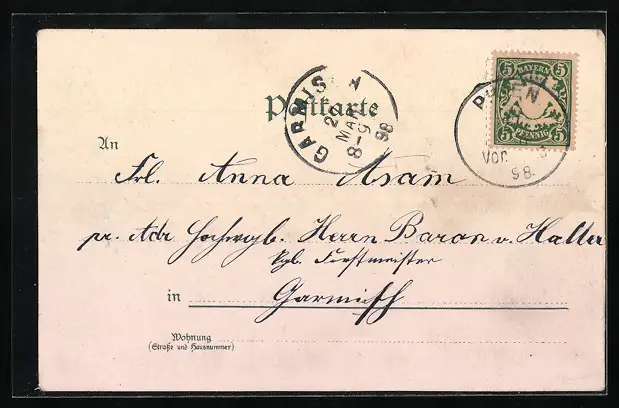 Postkarte
GARMISCH
MAR
8-9
98
5 BAYERN 5
5 PFENNIG 5
Vor
98.
An
Frl. Anna Asam
pr. Adr Hochwgb. Herrn Baron v. Haller
kgl. Forstmeister
in Garmisch
Wohnung
(Straße und Hausnummer)